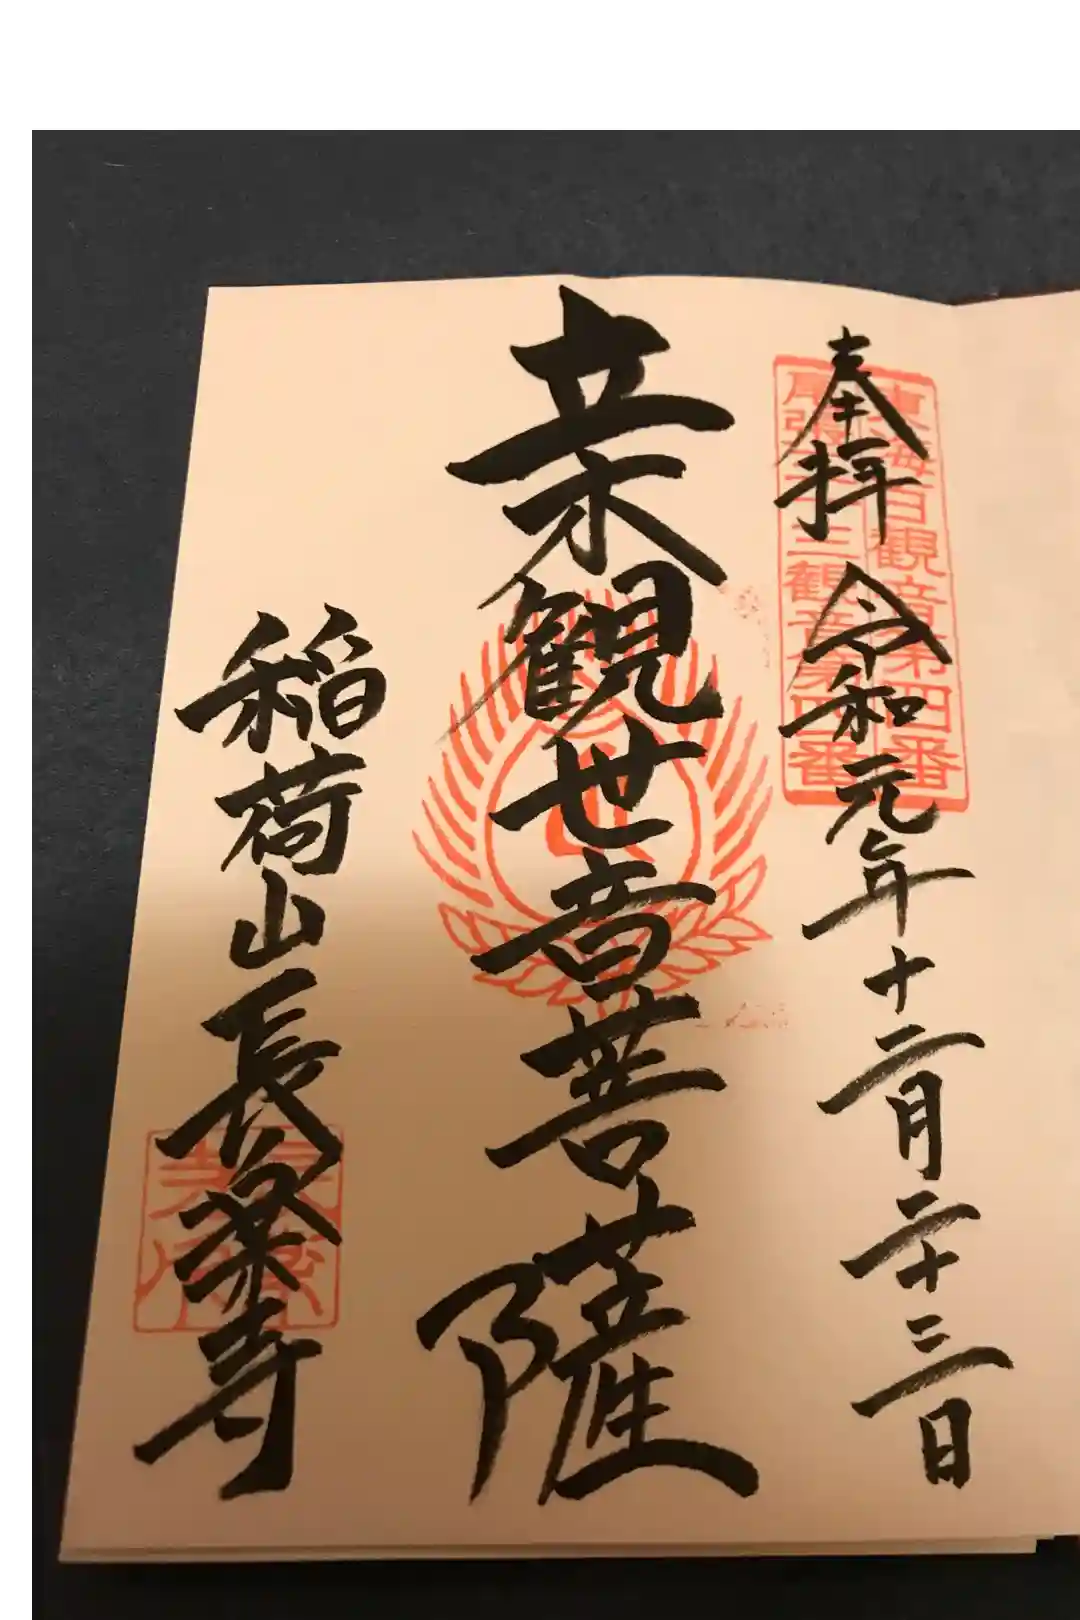 東海百観音第四番
尾張三十三観音第四番
奉拝 令和元年十二月二十三日
立木観世音菩薩
稲荷山長楽寺